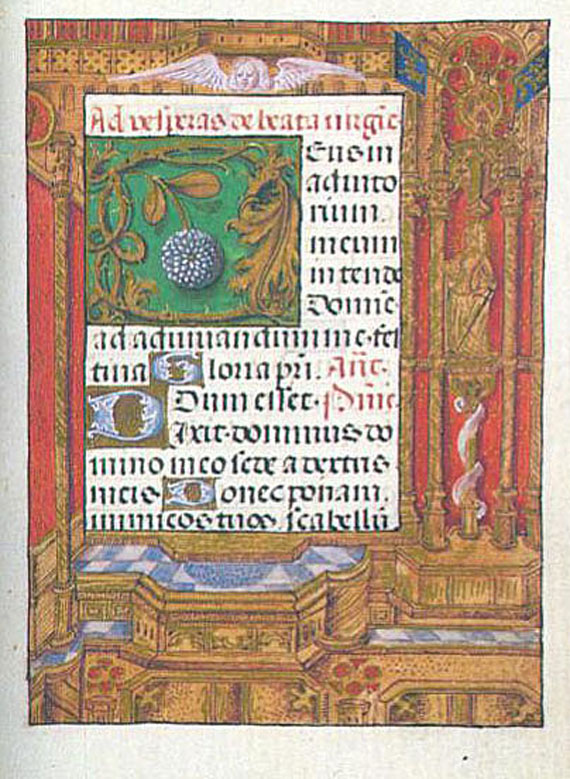 Ad vesperas de beata virgīe
Eus in
adiuto
rium
meum
intende
Domīe·
ad adiuvandum me·fes
tina Gloria pr̄i. Añt·
Dum esset· Psm̄e
Dixit·dominus do
mino meo sede a dextris
meis Donec ponam
inimicos tuos scabellū